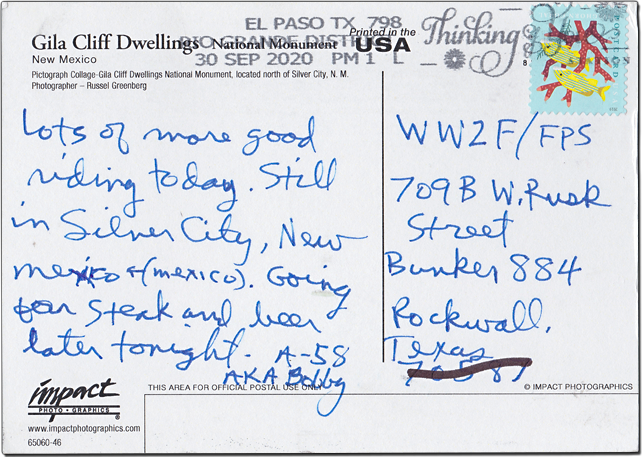 EL PASO TX 798
RIO GRANDE DISTRICT
30 SEP 2020 PM 1 L
Thinking
Gila Cliff Dwellings National Monument
New Mexico
Printed in the
USA
Pictograph Collage-Gila Cliff Dwellings National Monument, located north of Silver City, N. M.
Photographer – Russel Greenberg
Lots of more good
riding today. Still
in Silver City, New
mexico (mexico). Going
for Steak and beer
later tonight. A-58
AKA Bobby
WW2F/FPS
709B W. Rusk
Street
Bunker 884
Rockwall,
Texas
impact
PHOTO • GRAPHICS
www.impactphotographics.com
65060-46
THIS AREA FOR OFFICIAL POSTAL USE ONLY
© IMPACT PHOTOGRAPHICS